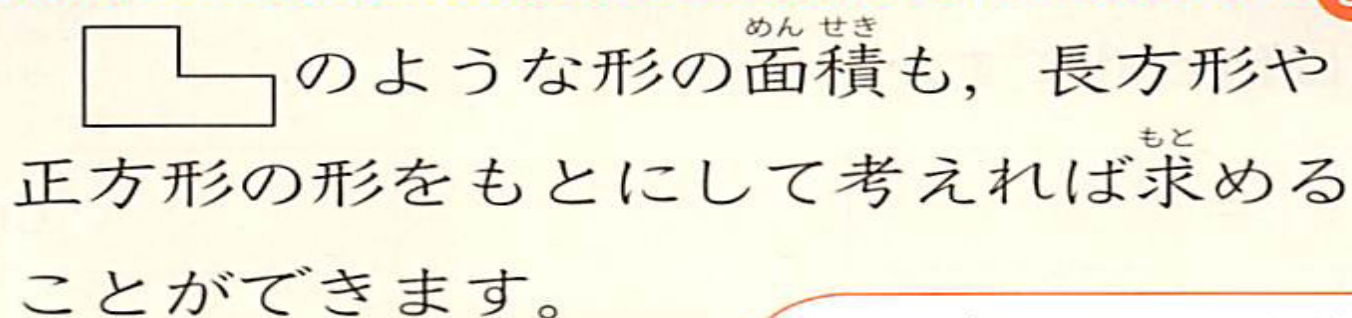 のような形の面積も，長方形や
正方形の形をもとにして考えれば求める
ことができます。